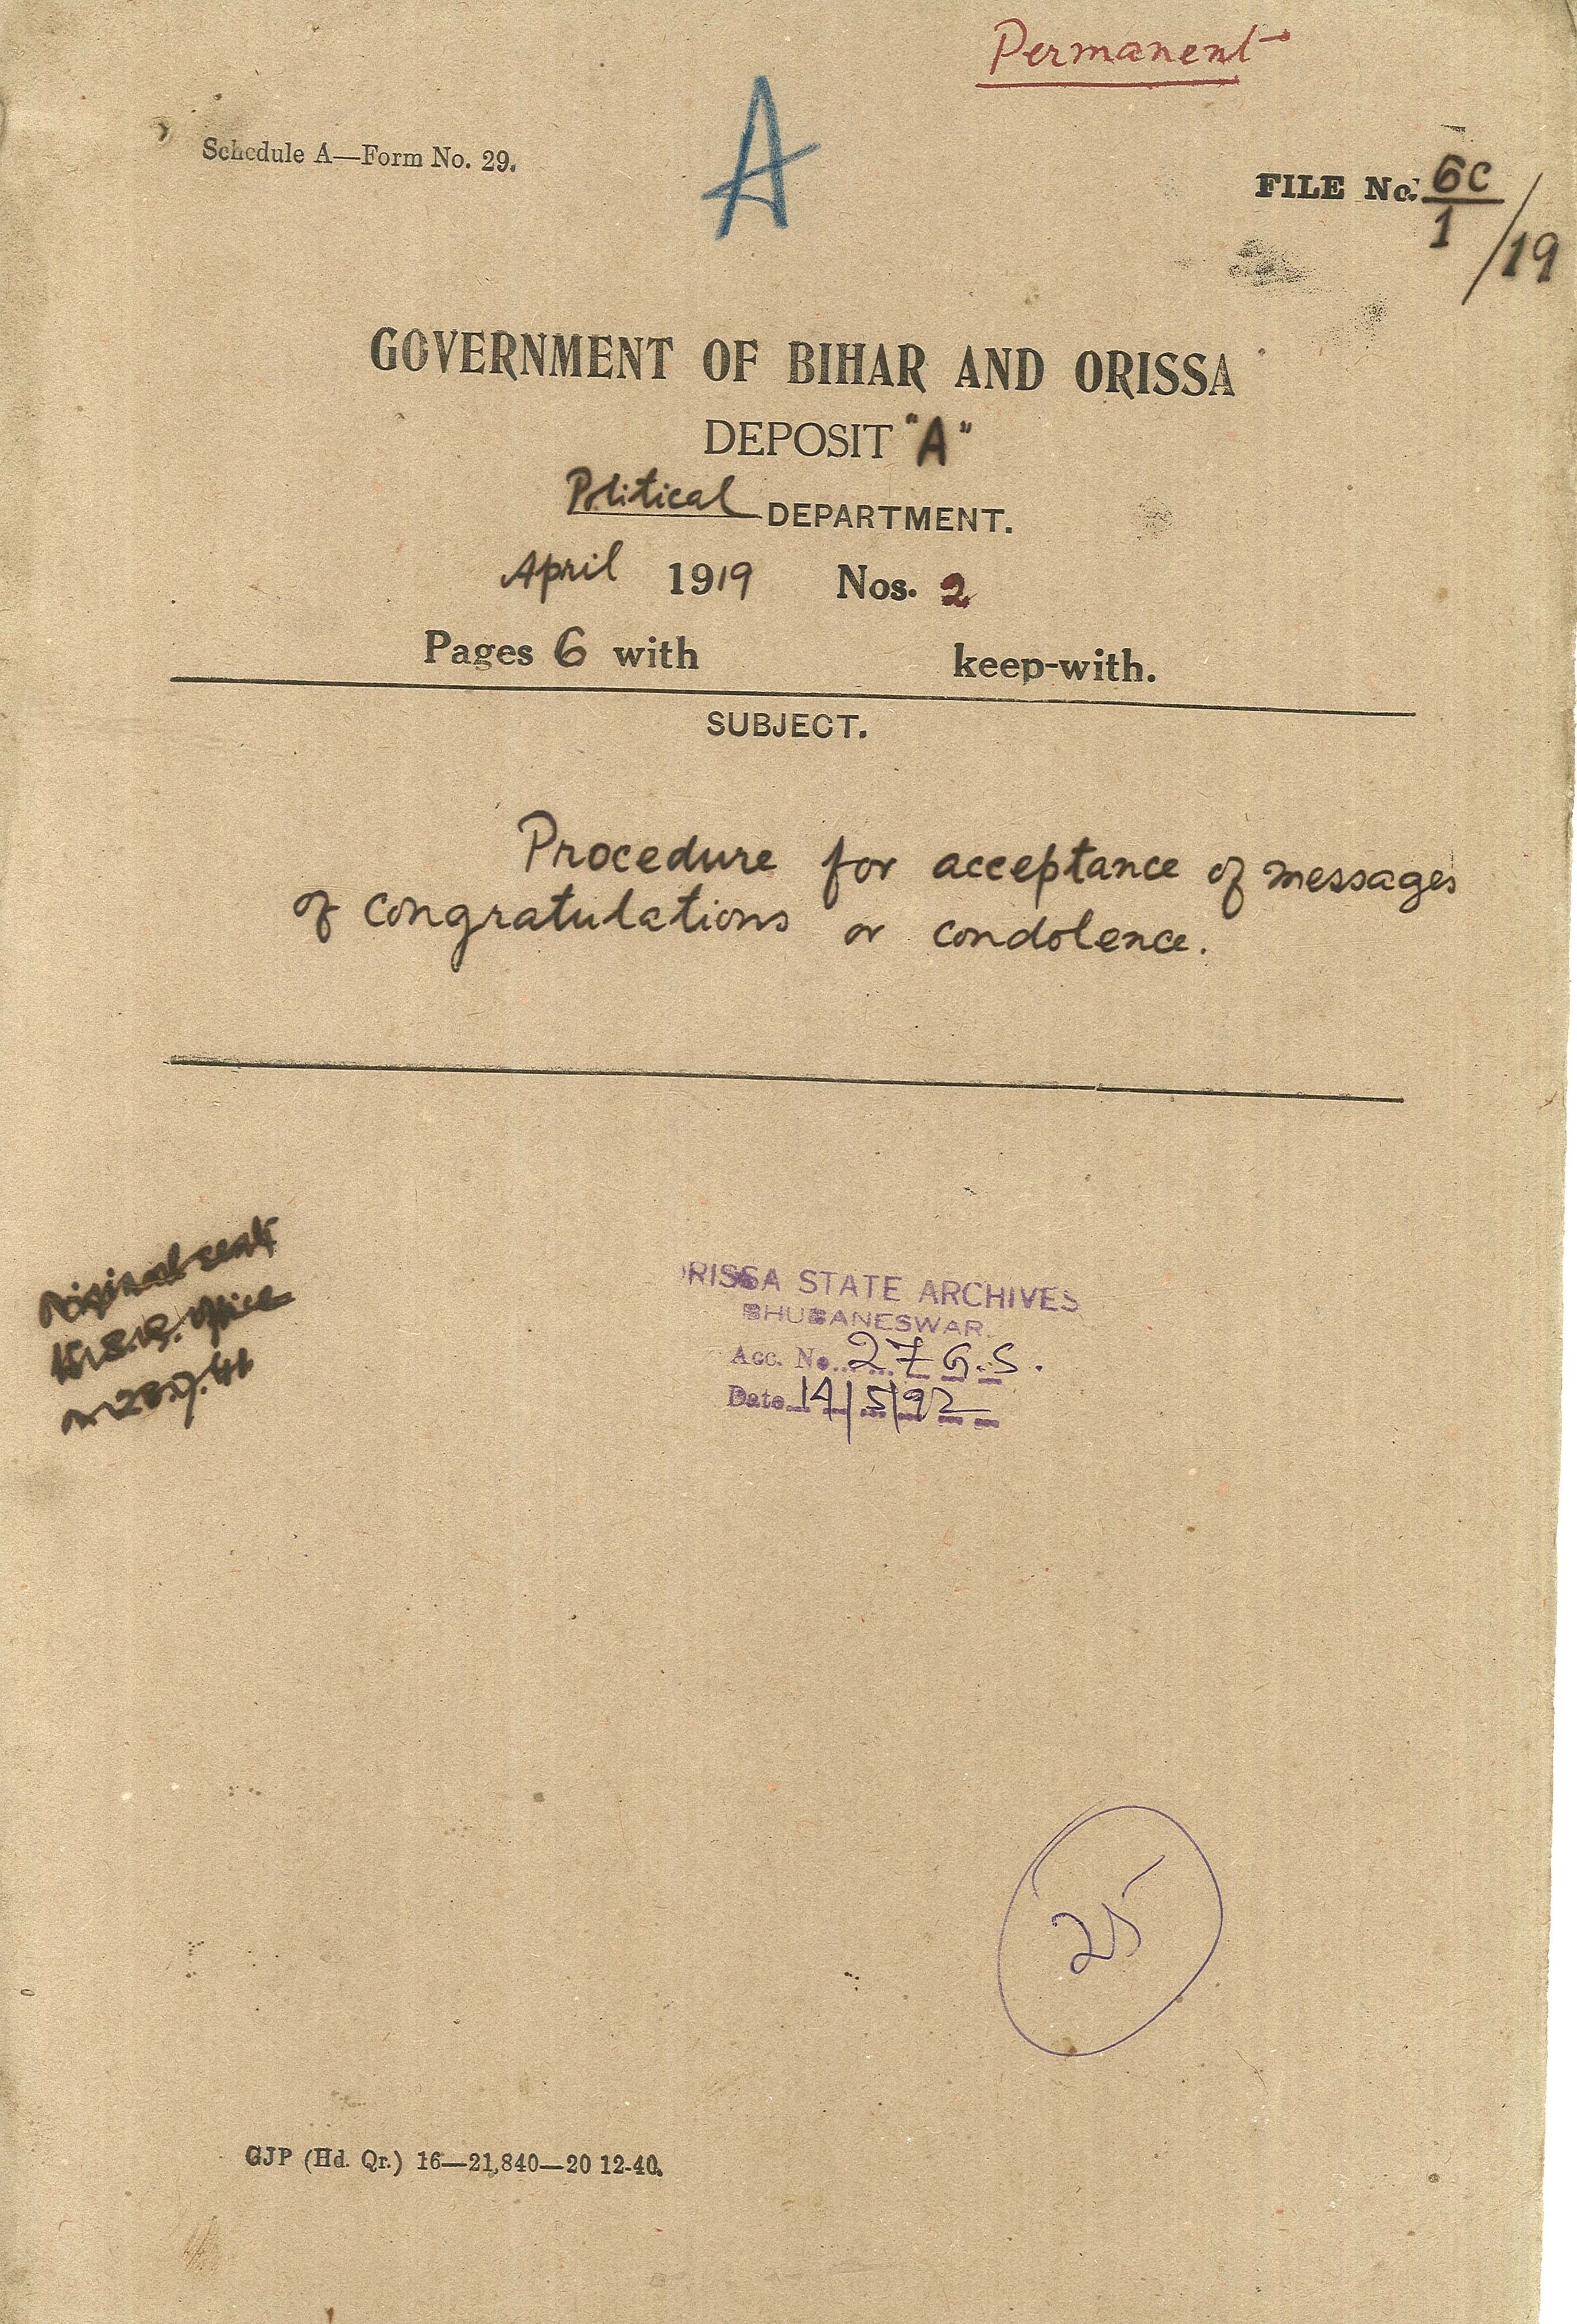 Permanent
A
Schedule A—Form No. 29.
FILE No. 6C/1/19
GOVERNMENT OF BIHAR AND ORISSA
DEPOSIT "A"
Political DEPARTMENT.
April 1919 Nos. 2
Pages 6 with keep-with.
SUBJECT.
Procedure for acceptance of messages
of congratulations or condolence.
Original sent
Office
ORISSA STATE ARCHIVES
BHUBANESWAR.
Acc. No. 27 G.S.
Date 14/5/92
25
GJP (Hd. Qr.) 16—21,840—20 12-40.